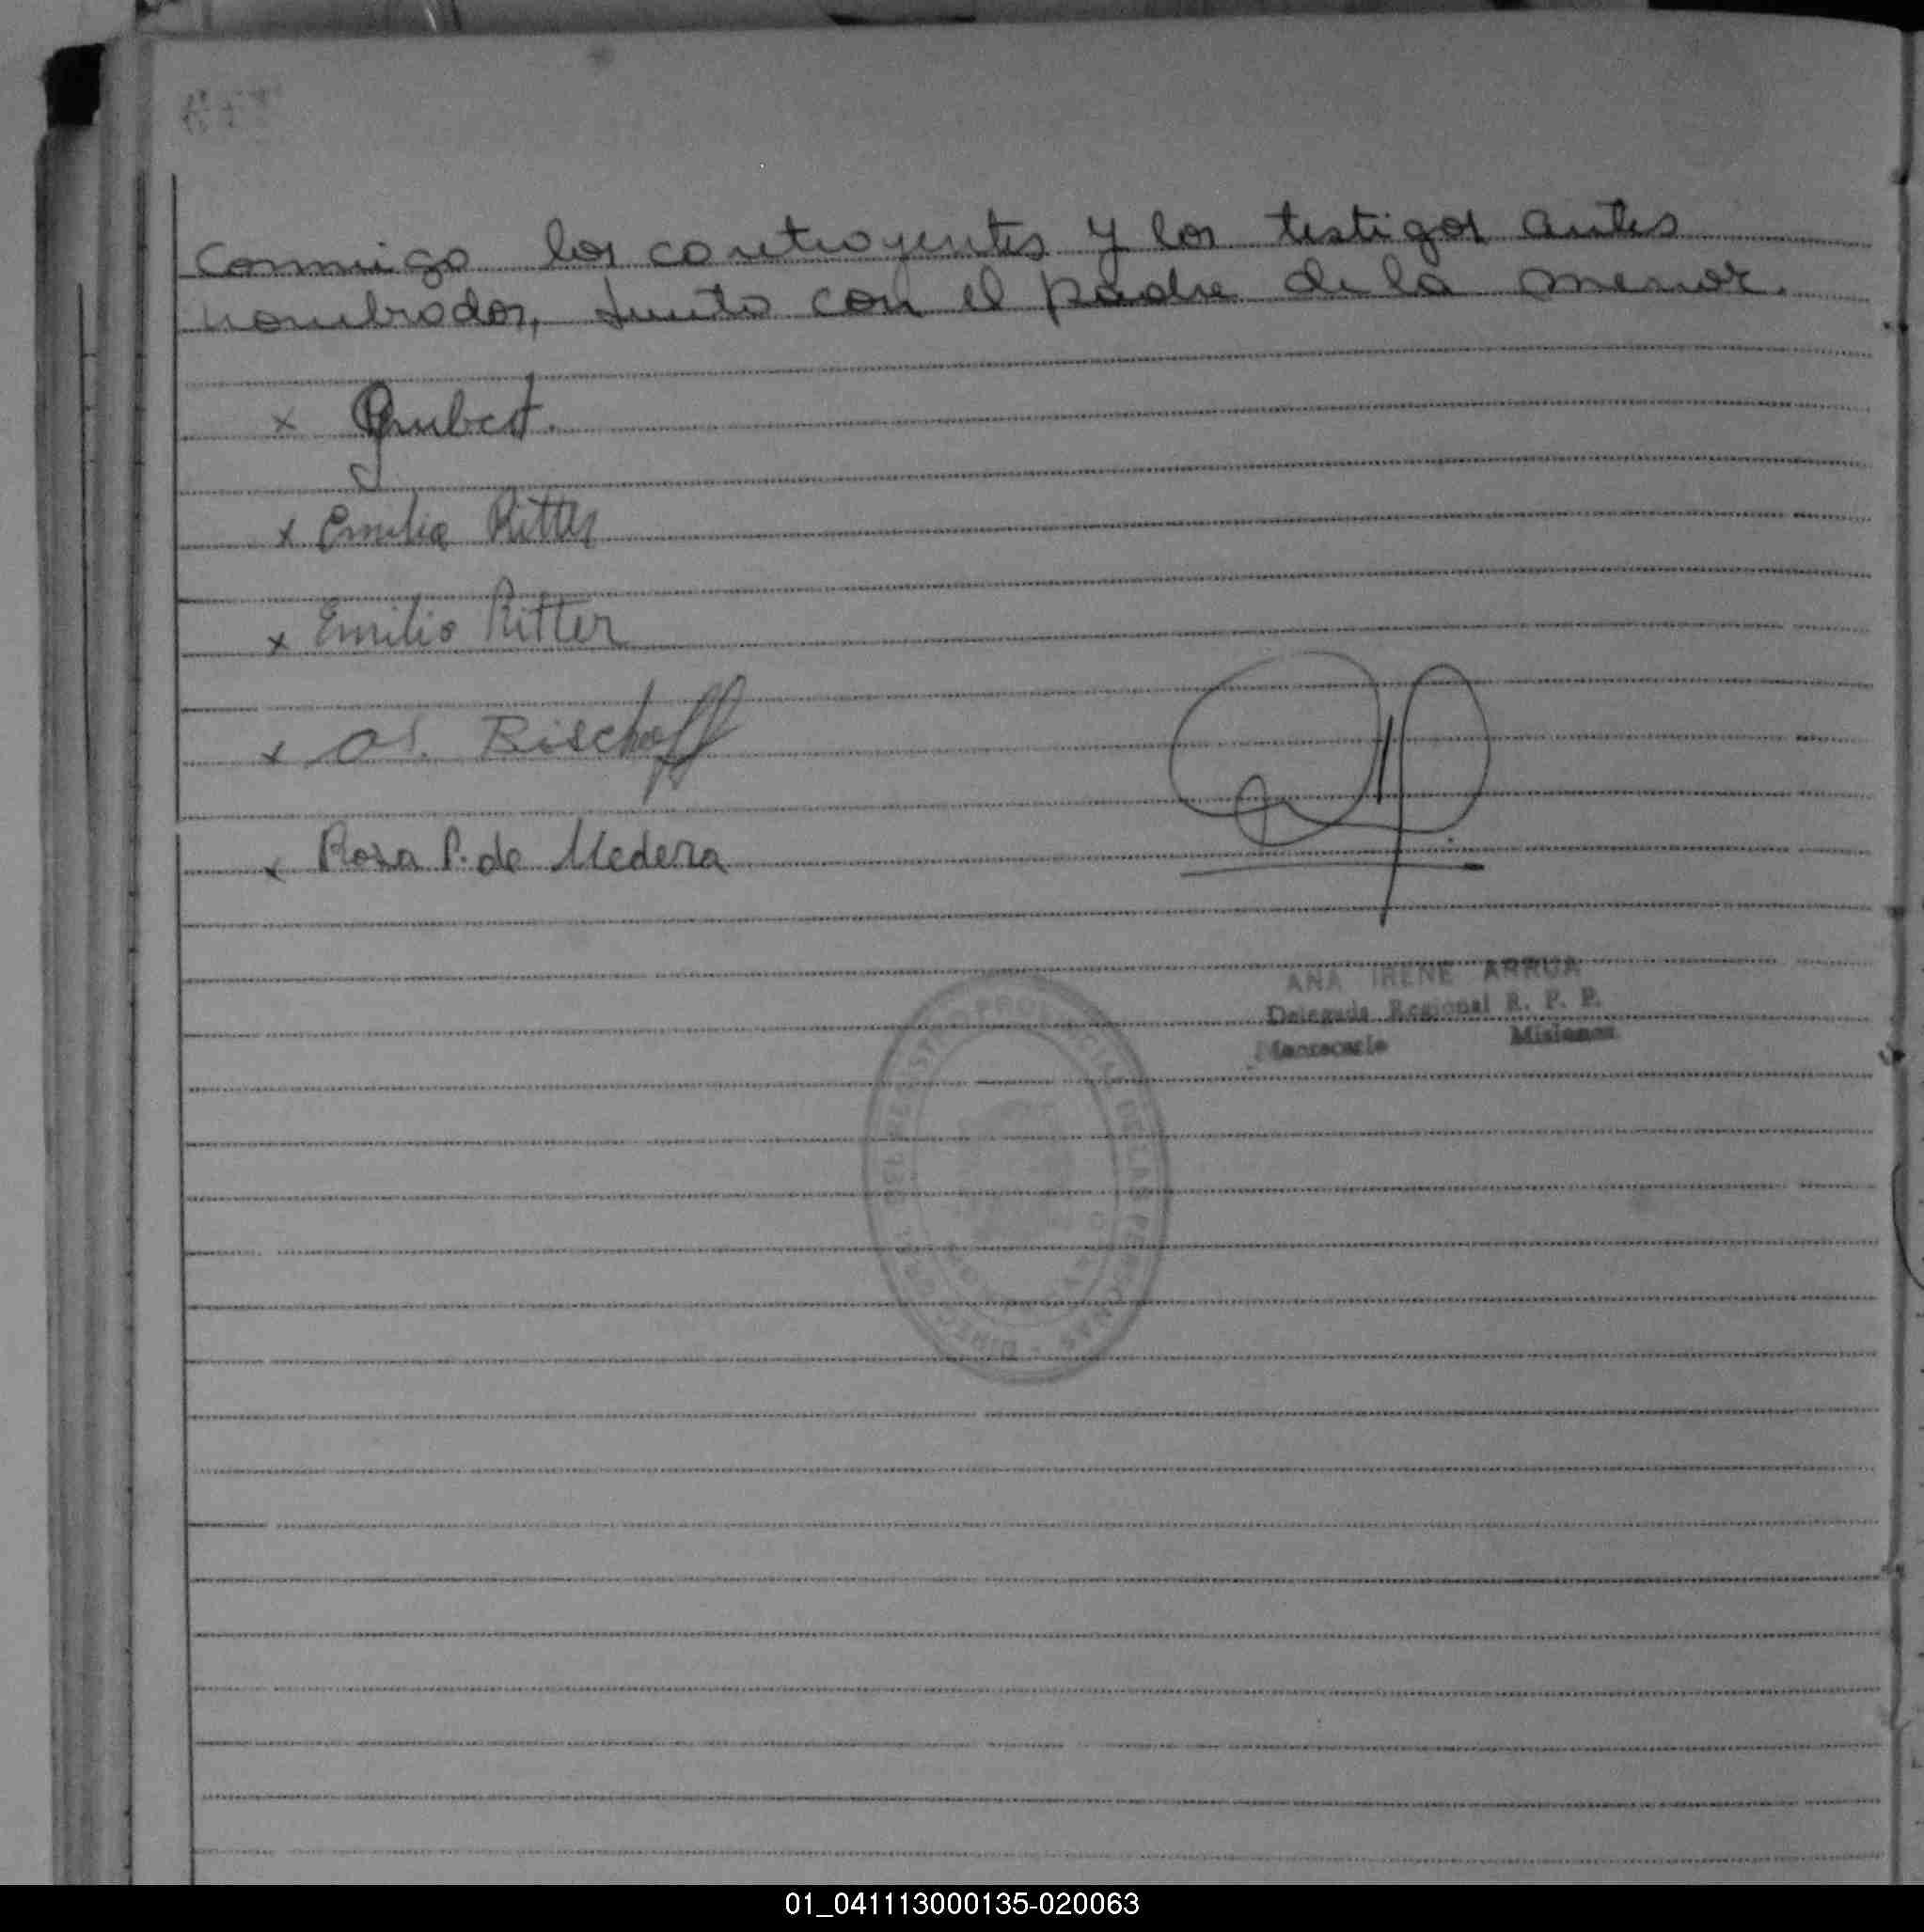 conmigo los contrayentes y los testigos antes
nombrados, junto con el padre de la menor.
x
x Emilia Ritter
x Emilio Ritter
x Bischoff
x Rosa P. de Medera
ANA IRENE ARRUA
Delegada Regional R. P. P.
Montecarlo Misiones
REGISTRO PROVINCIAL DE LAS PERSONAS
01_041113000135-020063